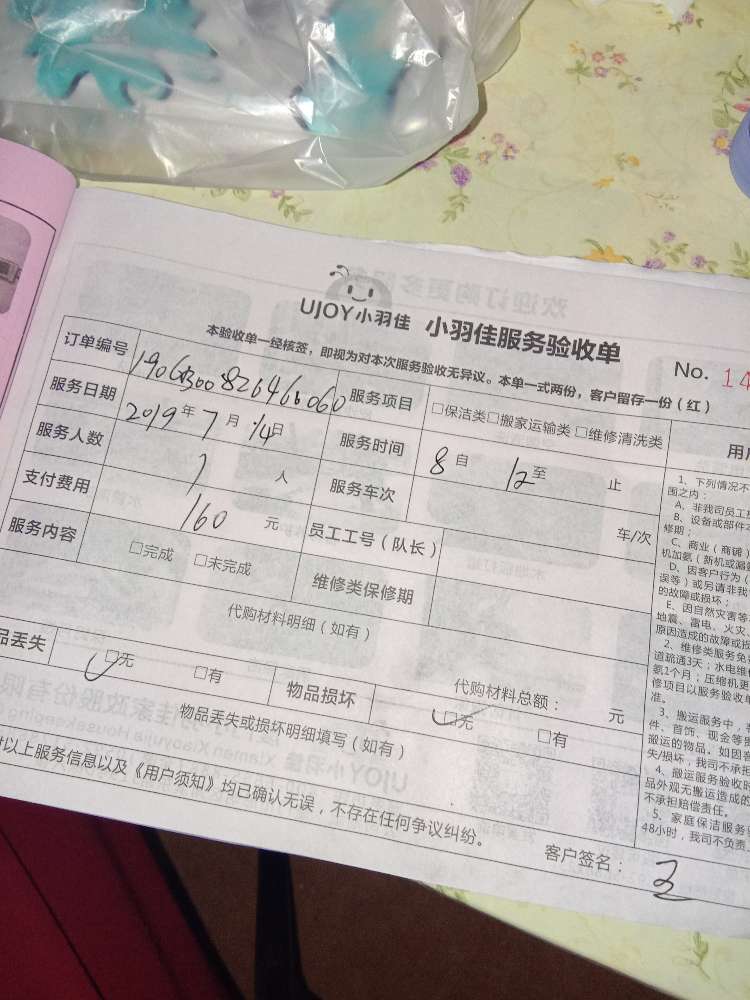 UJOY小羽佳 小羽佳服务验收单
本验收单一经核签，即视为对本次服务验收无异议。本单一式两份，客户留存一份（红）
No. 14
订单编号
服务项目 □保洁类□搬家运输类□维修清洗类
服务日期 2019年7月14日 服务时间 8自 12至 止
服务人数 1人 服务车次 车/次
支付费用 160元 员工工号（队长）
服务内容 □完成 □未完成 维修类保修期
代购材料明细（如有）
代购材料总额： 元
品丢失 □无 □有 物品损坏 □无 □有
物品丢失或损坏明细填写（如有）
以上服务信息以及《用户须知》均已确认无误，不存在任何争议纠纷。
客户签名：
用户
1、下列情况不
围之内：
A、非我司员工
B、设备或部件
修期；
C、商业（商铺）
机加氨（新机或漏
D、因客户行为（
误等）或另请非我
的故障或损坏；
E、因自然灾害等
地震、雷电、火灾
原因造成的故障或
2、维修类服务免
道疏通3天；水电维
氨1个月；压缩机更
修项目以服务验收单
准。
3、搬运服务中，
件、首饰、现金等
搬运的物品。如因
失/损坏，我司不承担
4、搬运服务验收时
品外观无搬运造成的
不承担赔偿责任。
5、家庭保洁服务
48小时，我司不负责